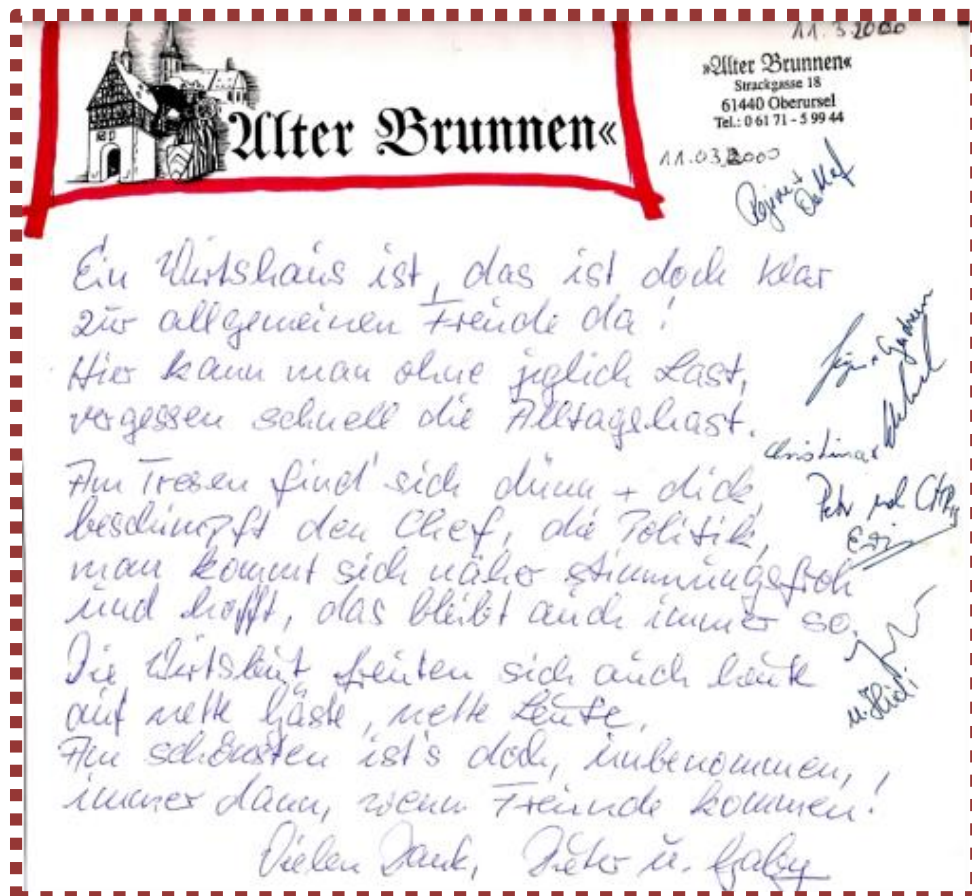 11.3.2000
»Alter Brunnen«
Strackgasse 18
61440 Oberursel
Tel.: 0 61 71 - 5 99 44
»Alter Brunnen«
11.03.2000
Ein Wirtshaus ist, das ist doch klar
zur allgemeinen Freude da!
Hier kann man ohne jeglich Last,
vergessen schnell die Alltagshast.
Am Tresen find' sich dünn + dick,
beschimpft den Chef, die Politik,
man kommt sich näher stimmungsfroh
und hofft, das bleibt auch immer so.
Die Wirtsleut freuten sich auch heute
auf nette Gäste, nette Leute,
Am schönsten ist's doch, unbenommen,
immer dann, wenn Freunde kommen!
Christina +
Vielen Dank, Dieter u. Gaby